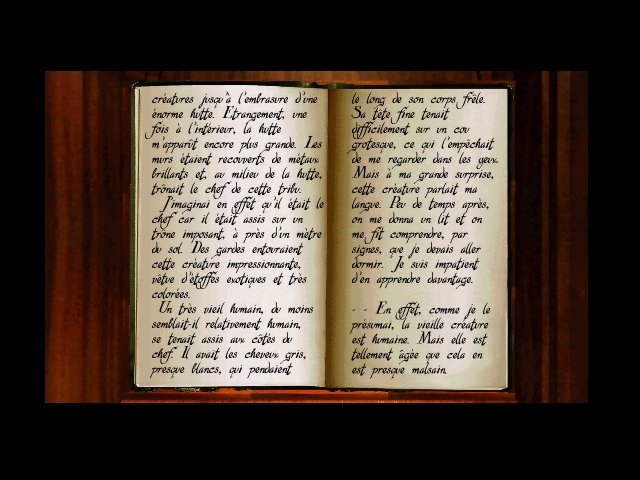 créatures jusqu'à l'embrasure d'une
énorme hutte. Etrangement, une
fois à l'intérieur, la hutte
m'apparût encore plus grande. Les
murs étaient recouverts de métaux
brillants et, au milieu de la hutte,
trônait le chef de cette tribu.
J'imaginai en effet qu'il était le
chef car il était assis sur un
trône imposant, à près d'un mètre
du sol. Des gardes entouraient
cette créature impressionnante,
vêtue d'étoffes exotiques et très
colorées.
Un très vieil humain, du moins
semblait-il relativement humain,
se tenait assis aux côtés du
chef. Il avait les cheveux gris,
presque blancs, qui pendaient
le long de son corps frêle.
Sa tête fine tenait
difficilement sur un cou
grotesque, ce qui l'empêchait
de me regarder dans les yeux.
Mais à ma grande surprise,
cette créature parlait ma
langue. Peu de temps après,
on me donna un lit et on
me fit comprendre, par
signes, que je devais aller
dormir. Je suis impatient
d'en apprendre davantage.
- - En effet, comme je le
présumai, la vieille créature
est humaine. Mais elle est
tellement âgée que cela en
est presque malsain.